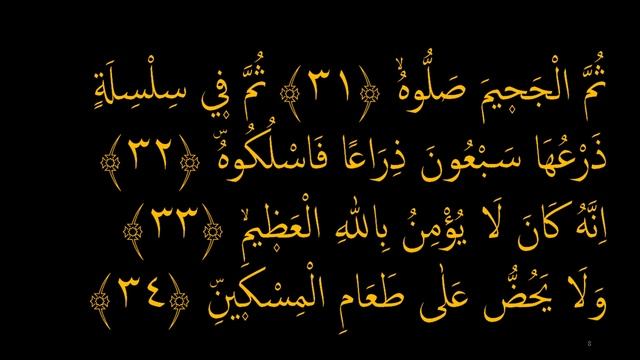 ثُمَّ الْجَحٖيمَ صَلُّوهُۙ ﴿٣١﴾ ثُمَّ فٖي سِلْسِلَةٍ
ذَرْعُهَا سَبْعُونَ ذِرَاعًا فَاسْلُكُوهُۜ ﴿٣٢﴾
اِنَّهُ كَانَ لَا يُؤْمِنُ بِاللهِ الْعَظٖيمِۙ ﴿٣٣﴾
وَلَا يَحُضُّ عَلٰى طَعَامِ الْمِسْكٖينِۜ ﴿٣٤﴾
8